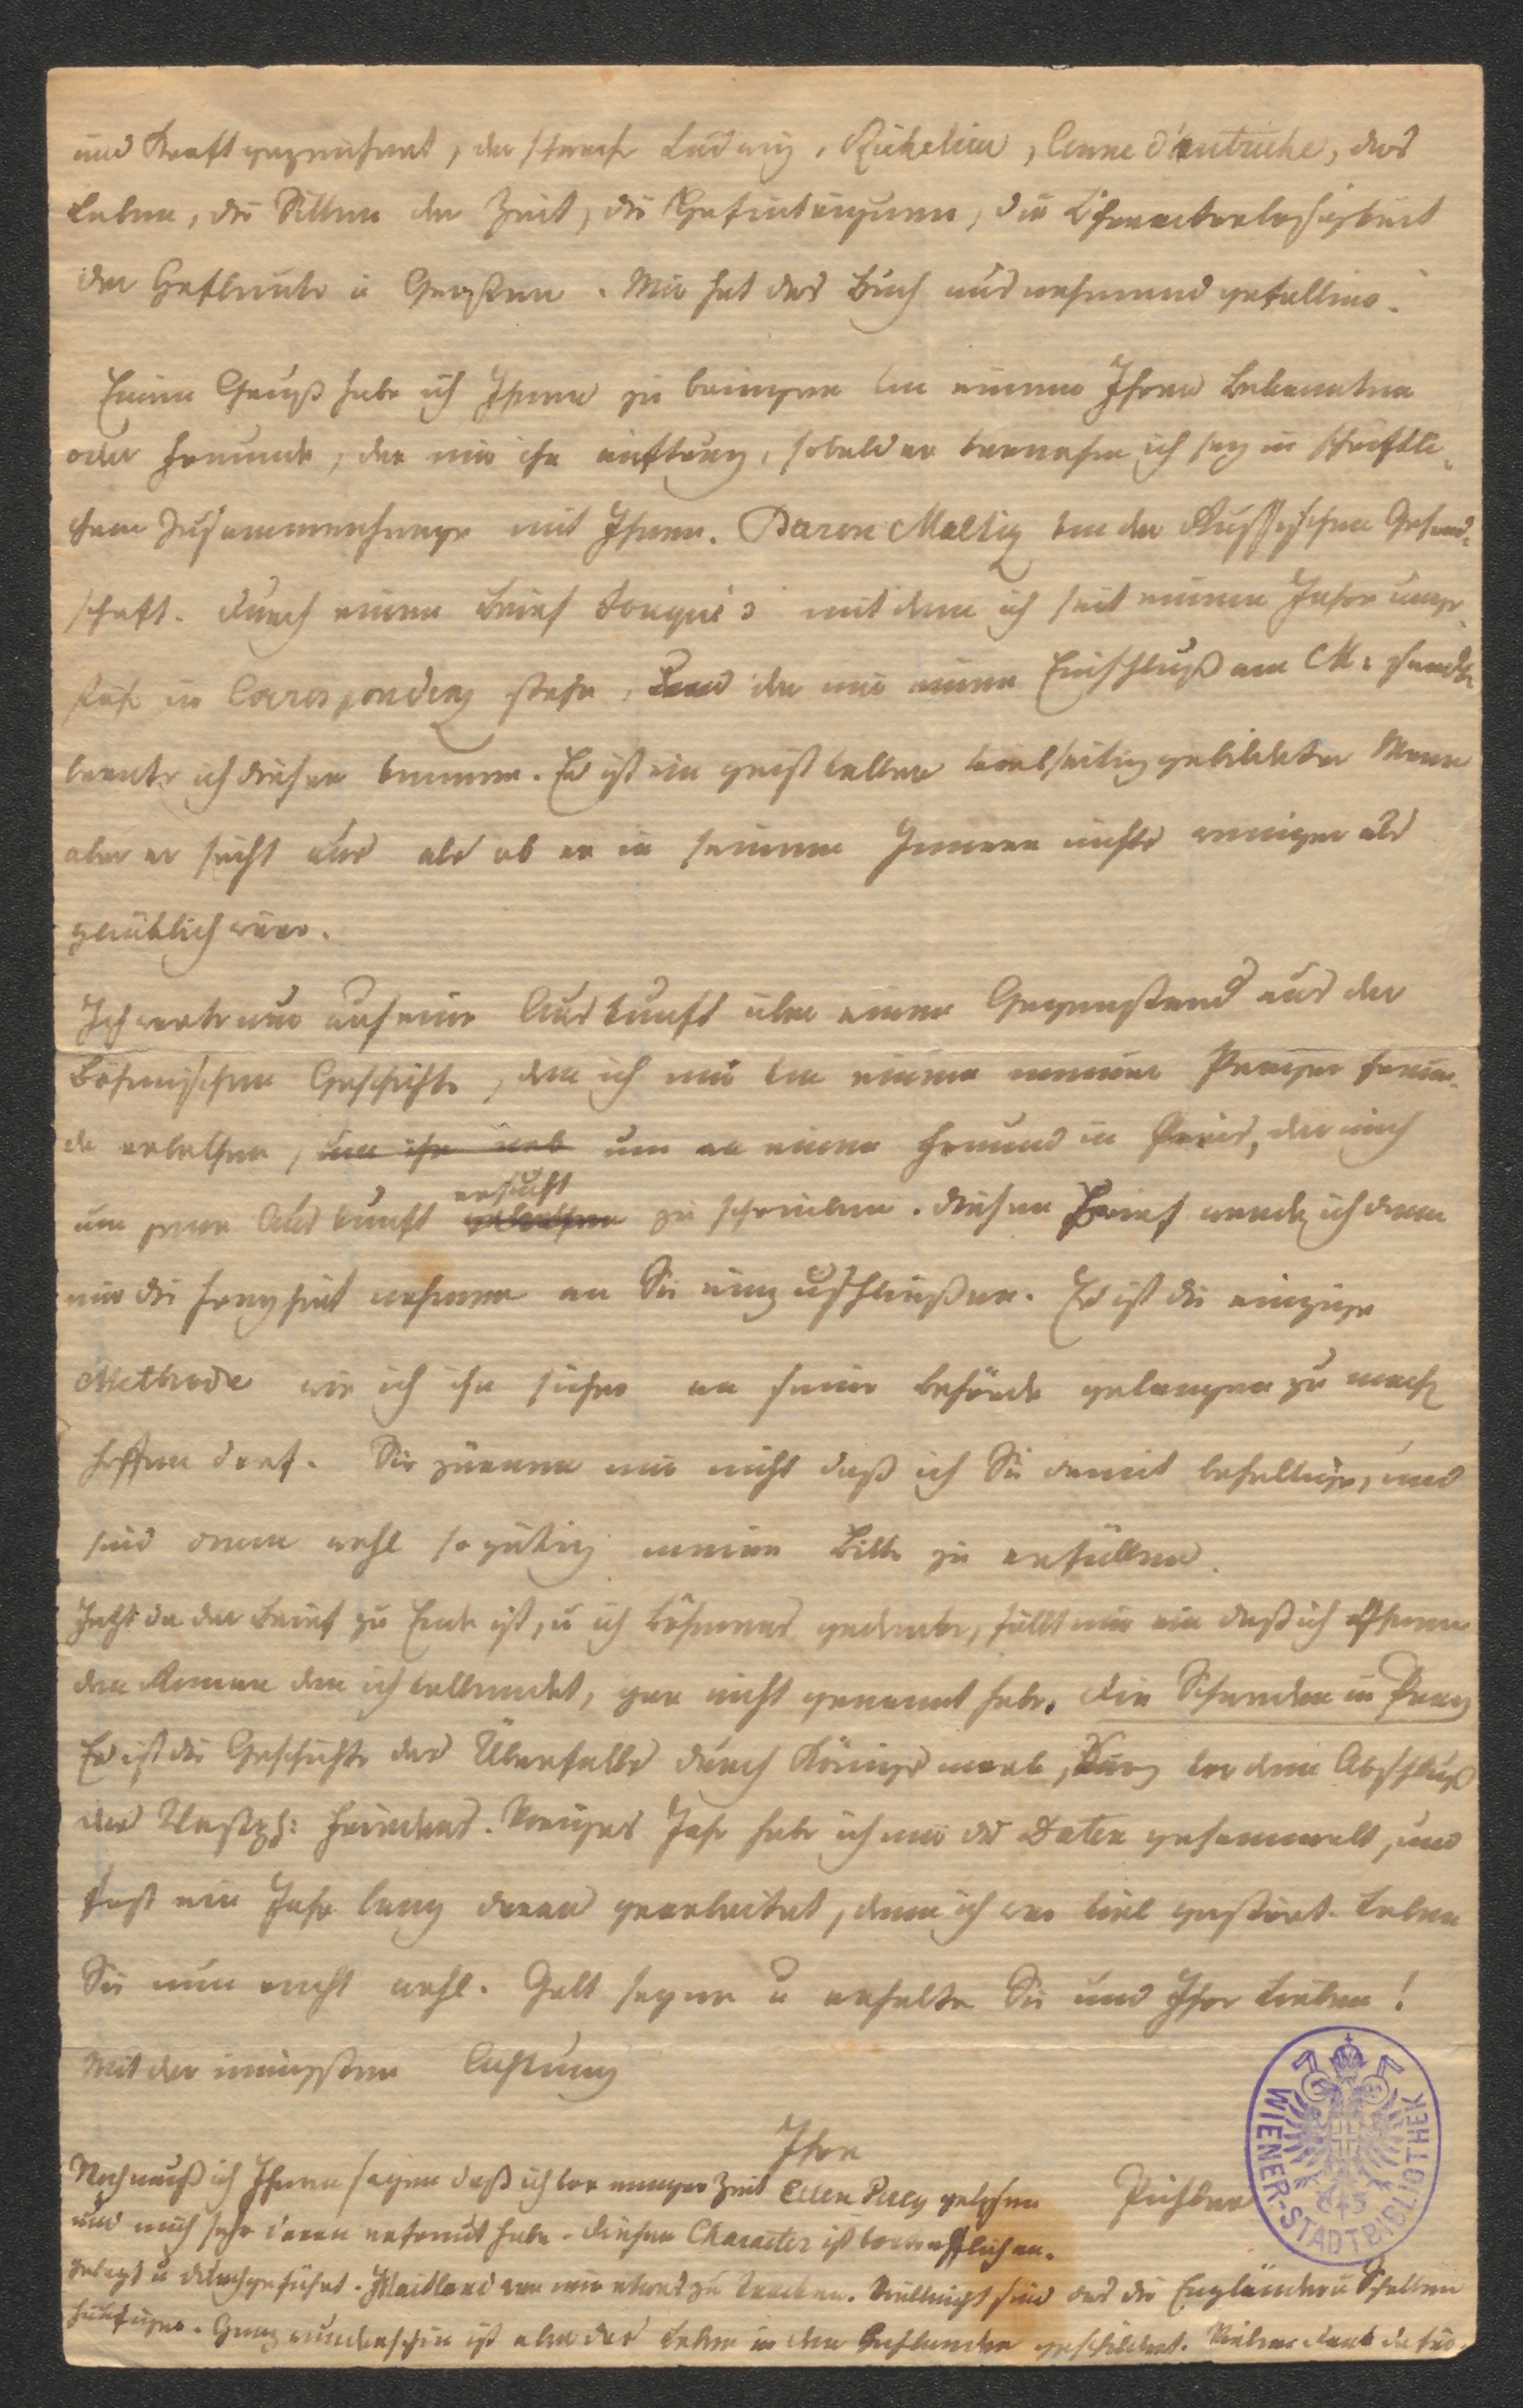 und Kraft gezeichnet, der schwache Ludwig, Richelieu, Anne d'autriche, das
Leben, die Sitten der Zeit, die Hofintriguen, die Characterlosigkeit
der Hofleute u Großen. Mir hat das Buch ausnehmend gefallen.
Einen Gruß habe ich Ihnen zu bringen von einem Ihrer Bekannten
oder Freunde, der mir ihn auftrug, sobald er vernahm ich sey in schriftli-
chem Zusammenhange mit Ihnen. Baron Maltiz von der Russischen Gesand-
schaft. Durch einen Brief Fouqué's mit dem ich seit einem Jahre unge-
fähr in Correspondenz stehe, und der mir einen Einschluß an M: sandte
lernte ich diesen kennen. Es ist ein geistvoller vielseitig gebildeter Mann
aber er sieht aus als ob er in seinem Innern nichts weniger als
glücklich wäre.
Ich warte nur auf eine Auskunft über einen Gegenstand aus der
Böhmischen Geschichte, den ich mir von einem meiner Prager Freun-
de erbethen, um an einen Freund in Paris, der mich
um jene Auskunft ersucht zu schreiben. Diesen Brief werde ich dann
mir die Freyheit nehmen an Sie einzuschließen. Es ist die einzige
Methode wie ich ihn sicher an seine Behörde gelangen zu mach
hoffen darf. Sie zürnen mir nicht daß ich Sie damit behellige, und
sind dann wohl so gütig meine Bitte zu erfüllen.
Jetzt da der Brief zu Ende ist, u ich Böhmens gedenke, fällt mir ein daß ich Ihnen
den Roman den ich vollendet, gar nicht genannt habe. Die Schweden in Prag
Es ist die Geschichte des Überfalls durch Königsmark, kurz vor dem Abschluß
des Westph: Friedens. Voriges Jahr habe ich mir die Daten gesammelt, und
fast ein Jahr lang daran gearbeitet, denn ich war viel gestört. Leben
Sie nun recht wohl. Gott segne u erhalte Sie und Ihre Lieben!
Mit der innigsten Achtung
Ihre
Pichler
Noch muß ich Ihnen sagen daß ich vor einiger Zeit Ellen Percy gelesen
und mich sehr daran erfreut habe. Dieser Character ist vortrefflich an-
gelegt u durchgeführt. Maitland war mir etwas zu trocken. Vielleicht sind das die Engländer u Schotten
häufiger. Ganz wunderschön ist aber das Leben in den Hochlanden geschildert. Vielen Dank dafür.
WIENER-STADTBIBLIOTHEK